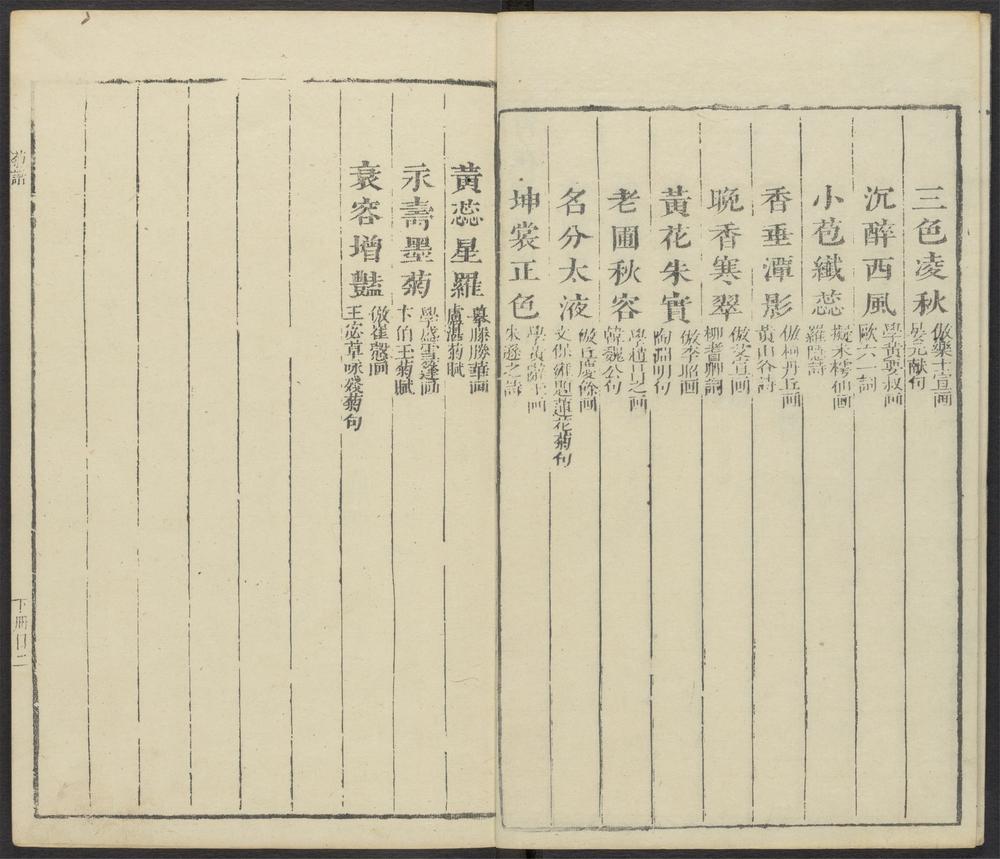 三色凌秋 倣樂士宣画
晏元献句
沉醉西風 學黃要叔画
歐六一詞
小苞纖蕊 擬朱樗仙画
羅隱詩
香垂潭影 倣柯丹丘画
黃山谷詩
晚香寒翠 倣艾宣画
柳耆卿詞
黃花朱實 倣李昭画
陶淵明句
老圃秋容 學趙昌之画
韓魏公句
名分太液 倣丘慶餘画
文保雍題蓮花菊句
坤裳正色 學黃 画
朱遜之詩
黃蕊星羅 摹滕勝華画
盧湛菊賦
永壽墨菊 學盛雪蓬画
卞伯玉菊賦
衰容增豔 倣崔慤画
王宓草咏殘菊句
菊譜
下冊目二